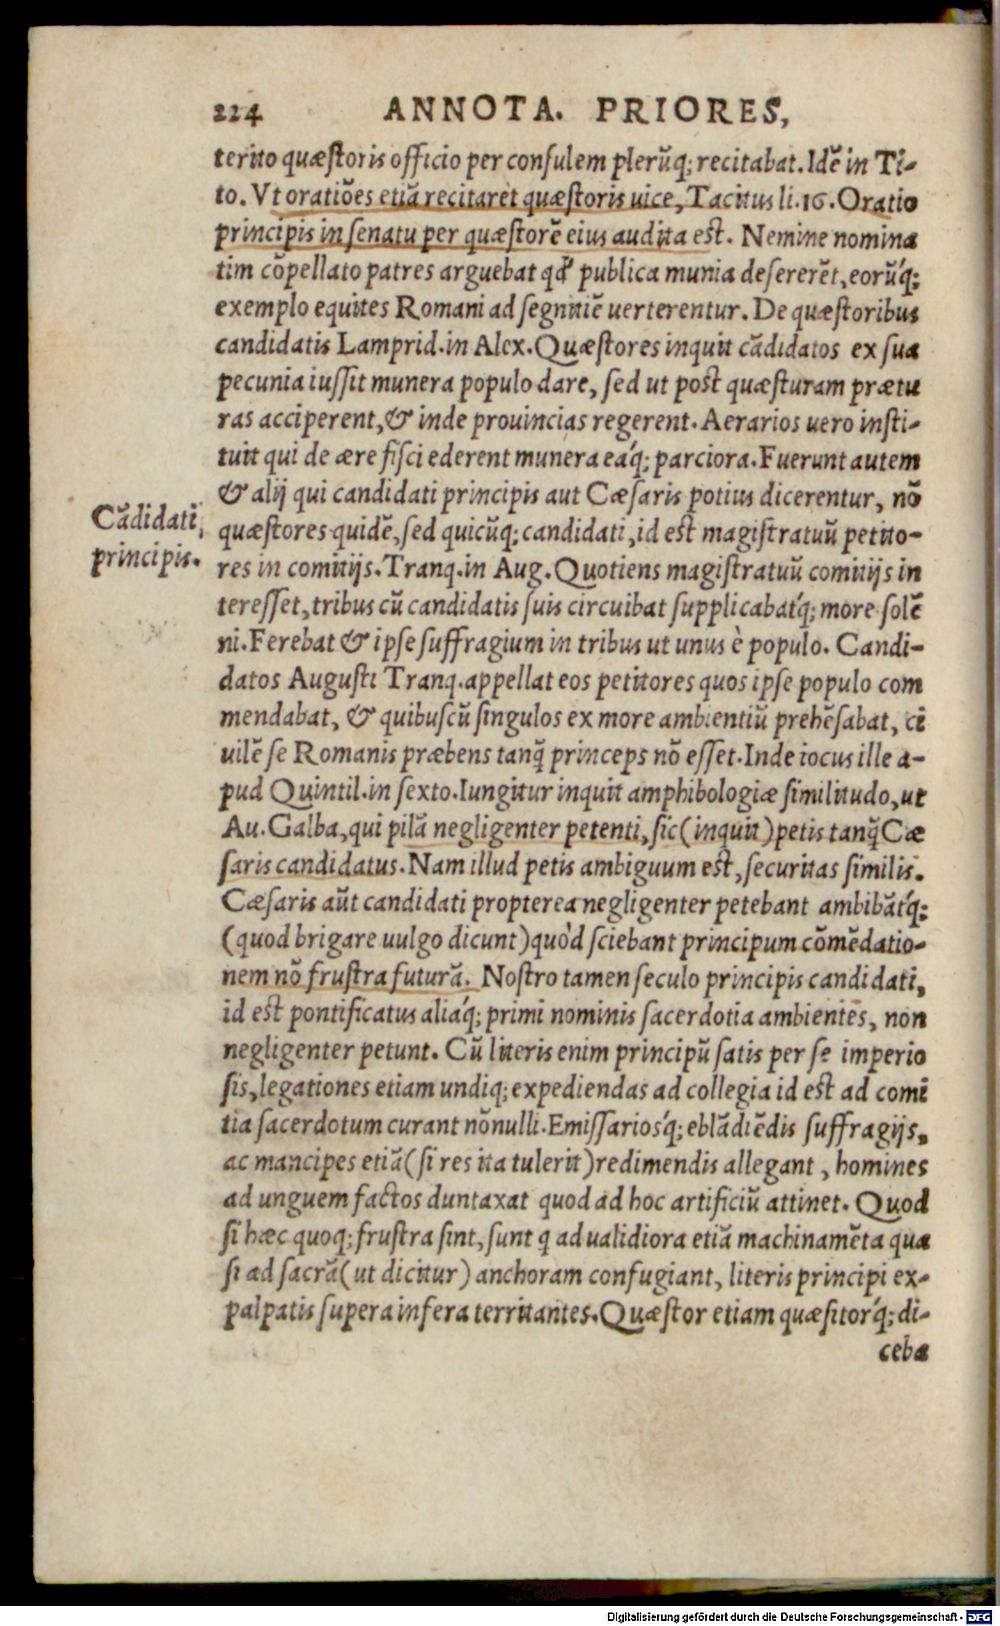 224 ANNOTA. PRIORES,
terito quæstoris officio per consulem plerūq; recitabat. Idē in Ti-
to. Vt oratiões etiā recitaret quæstoris uice, Tacitus li.16. Oratio
principis in senatu per quæstorē eius audita est. Nemine nomina
tim cōpellato patres arguebat qđ publica munia desererēt, eorúq́;
exemplo equites Romani ad segnitiē uerterentur. De quæstoribus
candidatis Lamprid. in Alex. Quæstores inquit cādidatos ex sua
pecunia iussit munera populo dare, sed ut post quæsturam prætu
ras acciperent, & inde prouincias regerent. Aerarios uero insti-
tuit qui de ære fisci ederent munera eáq́; parciora. Fuerunt autem
& alij qui candidati principis aut Cæsaris potius dicerentur, nō
Cādidati
principis.
quæstores quidē, sed quicūq; candidati, id est magistratuū petito-
res in comitijs. Tranq. in Aug. Quotiens magistratuū comitijs in
teresset, tribus cū candidatis suis circuibat supplicabatq́; more solē
ni. Ferebat & ipse suffragium in tribus ut unus è populo. Candi-
datos Augusti Tranq. appellat eos petitores quos ipse populo com
mendabat, & quibuscū singulos ex more ambientiū prehēsabat, ci
uilē se Romanis præbens tanq̃ princeps nō esset. Inde iocus ille a-
pud Quintil. in sexto. Iungitur inquit amphibologiæ similitudo, ut
Au. Galba, qui pilā negligenter petenti, sic (inquit) petis tanq̃ Cæ
saris candidatus. Nam illud petis ambiguum est, securitas similis.
Cæsaris aūt candidati propterea negligenter petebant ambibātq́;
(quod brigare uulgo dicunt) quòd sciebant principum cōmēdatio-
nem nō frustra futurā. Nostro tamen seculo principis candidati,
id est pontificatus aliáq́; primi nominis sacerdotia ambientes, non
negligenter petunt. Cū literis enim principū satis per se imperio
sis, legationes etiam undiq; expediendas ad collegia id est ad comi
tia sacerdotum curant nōnulli. Emissariosq́; eblādiēdis suffragijs,
ac mancipes etiā (si res ita tulerit) redimendis allegant, homines
ad unguem factos duntaxat quod ad hoc artificiū attinet. Quod
si hæc quoq; frustra sint, sunt q ad ualidiora etiā machinamēta qua
si ad sacrā (ut dicitur) anchoram confugiant, literis principi ex-
palpatis supera infera territantes. Quæstor etiam quæsitorq́; di-
ceba
Digitalisierung gefördert durch die Deutsche Forschungsgemeinschaft - DFG